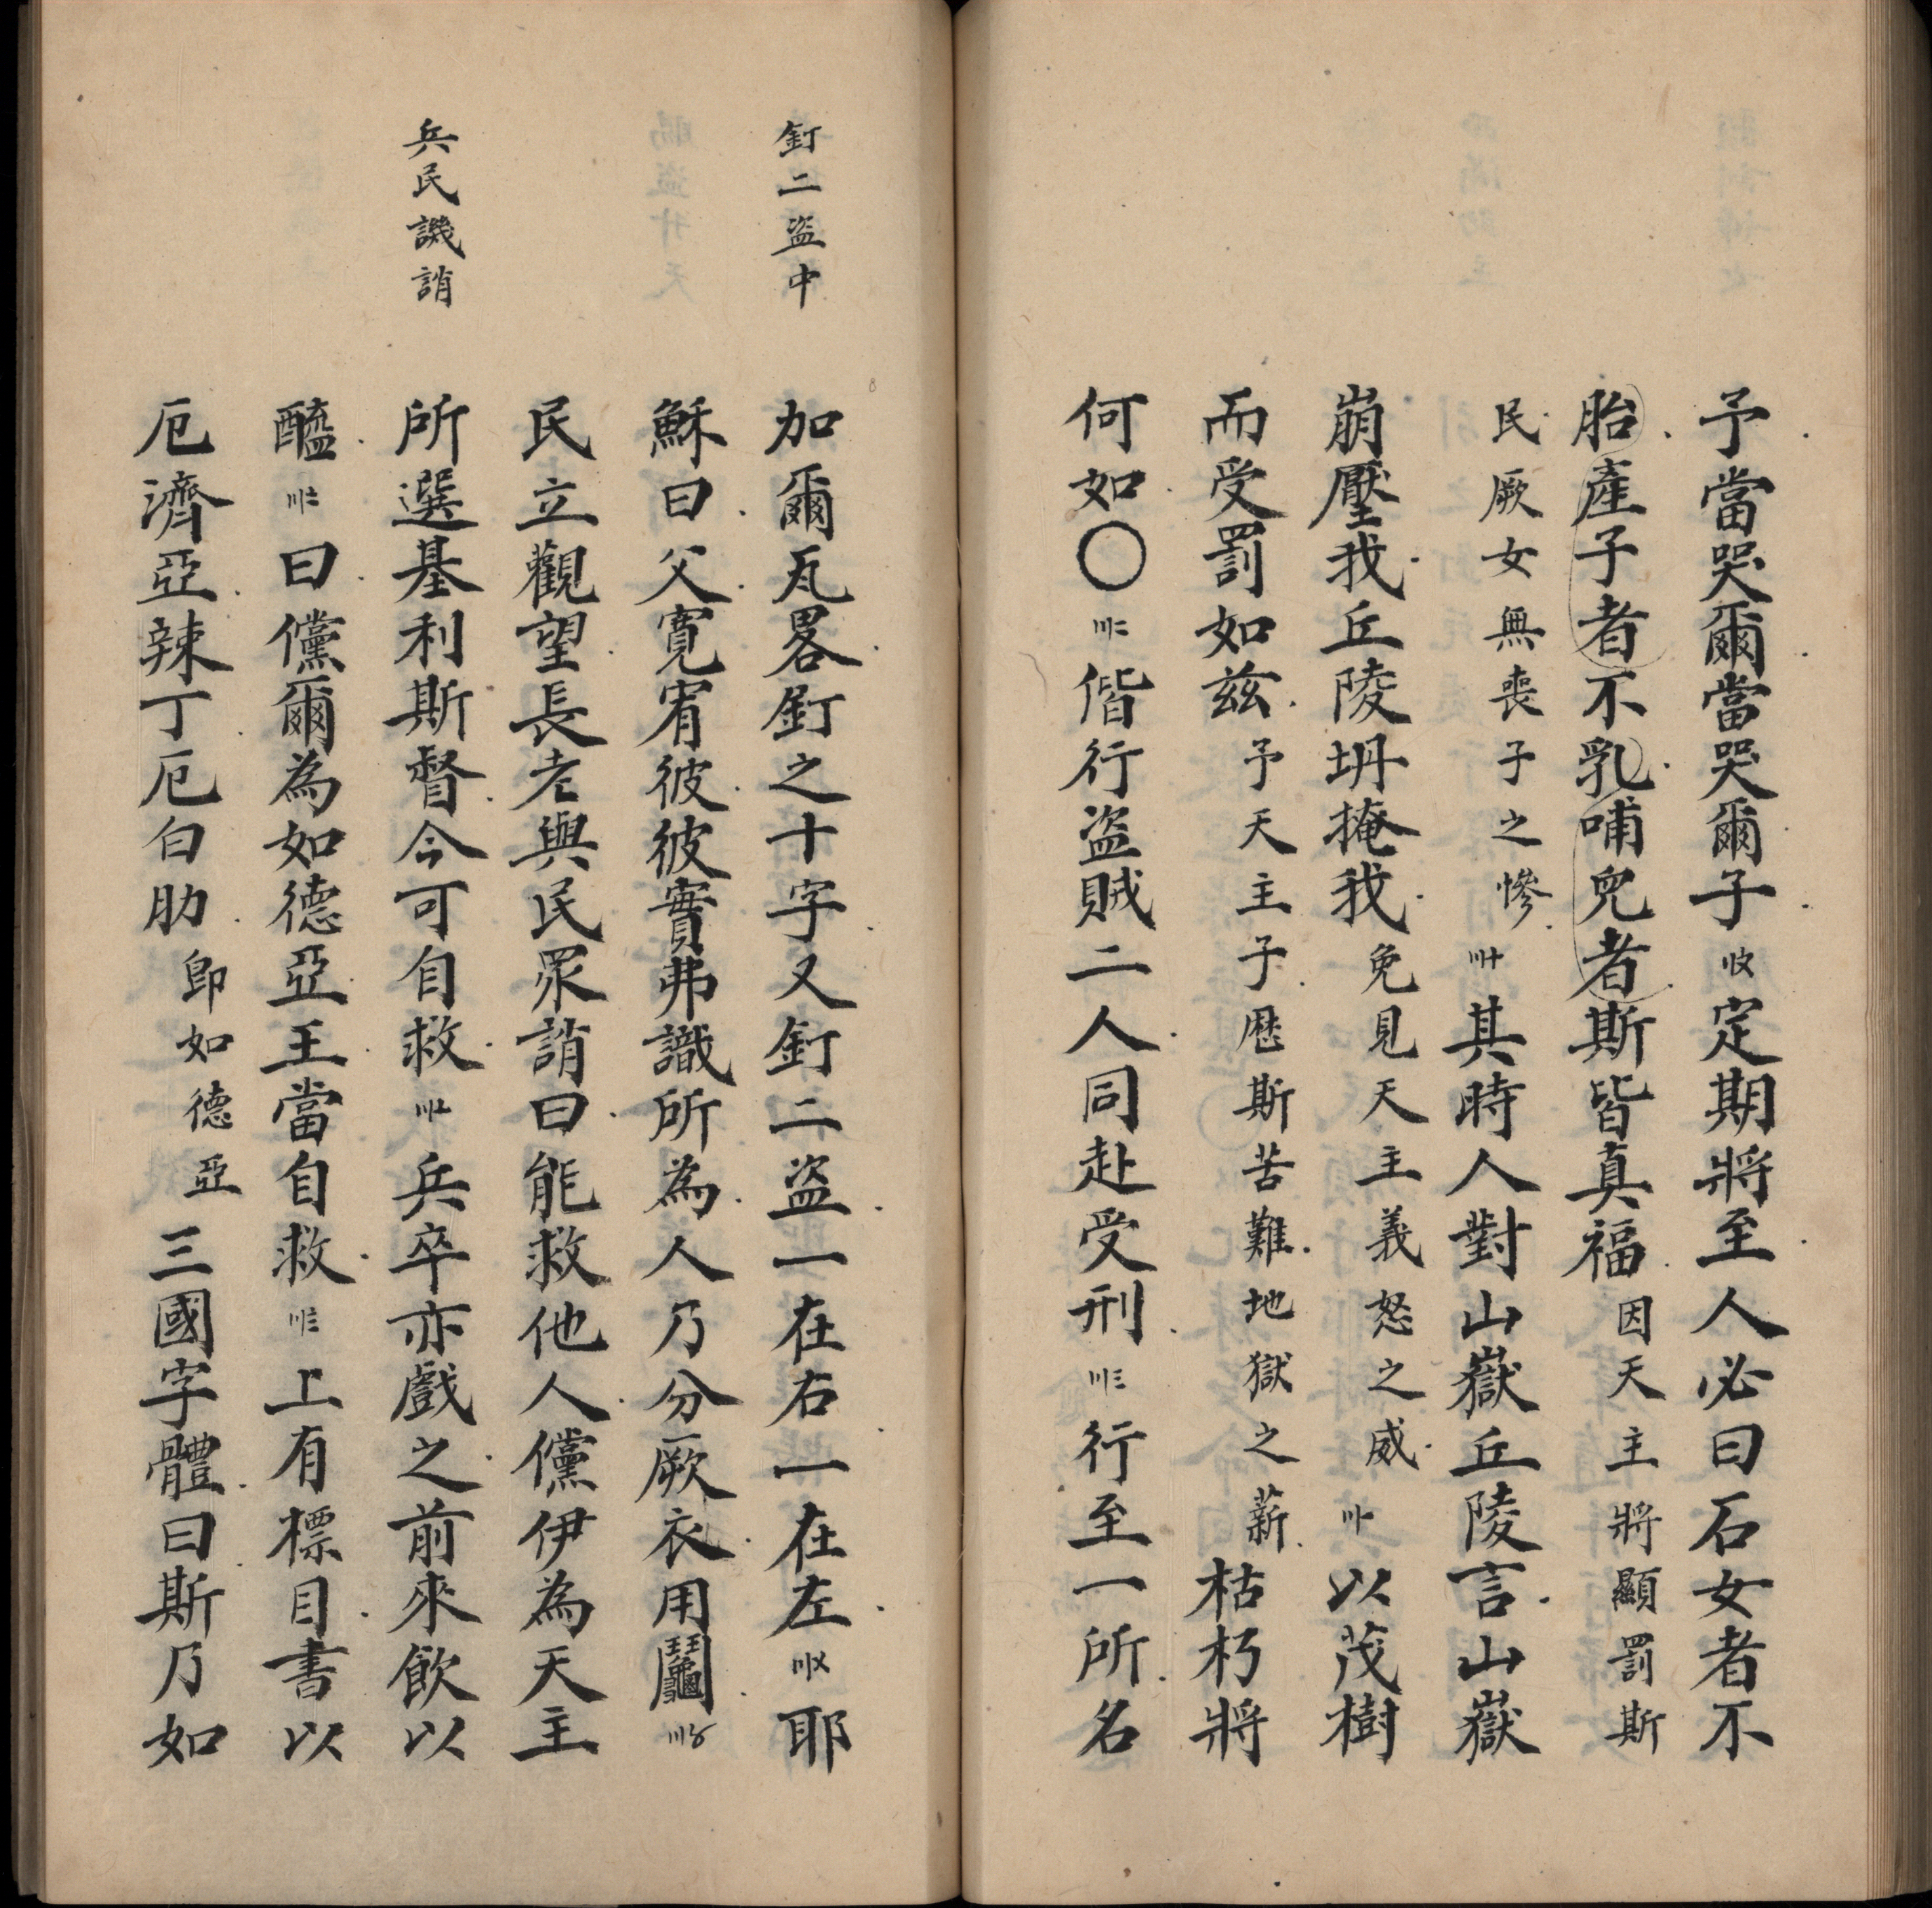 予當哭爾當哭爾子〢〩定期將至人必曰石女者不
胎產子者不乳哺兒者斯皆真福因天主將顯罰斯
民厥女無喪子之慘〣〸其時人對山嶽丘陵言山嶽
崩壓我丘陵坍掩我免見天主義怒之威〣〡以茂樹
而受罰如茲予天主子歷斯苦難地獄之薪枯朽將
何如〇〣二偕行盜賊二人同赴受刑〣三行至一所名
釘二盜中
加爾瓦畧釘之十字又釘二盜一在右一在左〣〤耶
穌曰父寬宥彼彼實弗識所為人乃分厥衣用鬮〣〥
民立觀望長老與民眾誚曰能救他人儻伊為天主
兵民譏誚
所選基利斯督今可自救〣〦兵卒亦戲之前來飲以
醯〣〧曰儻爾為如德亞王當自救〣〨上有標目書以
厄濟亞辣丁厄白肋即如德亞三國字體曰斯乃如